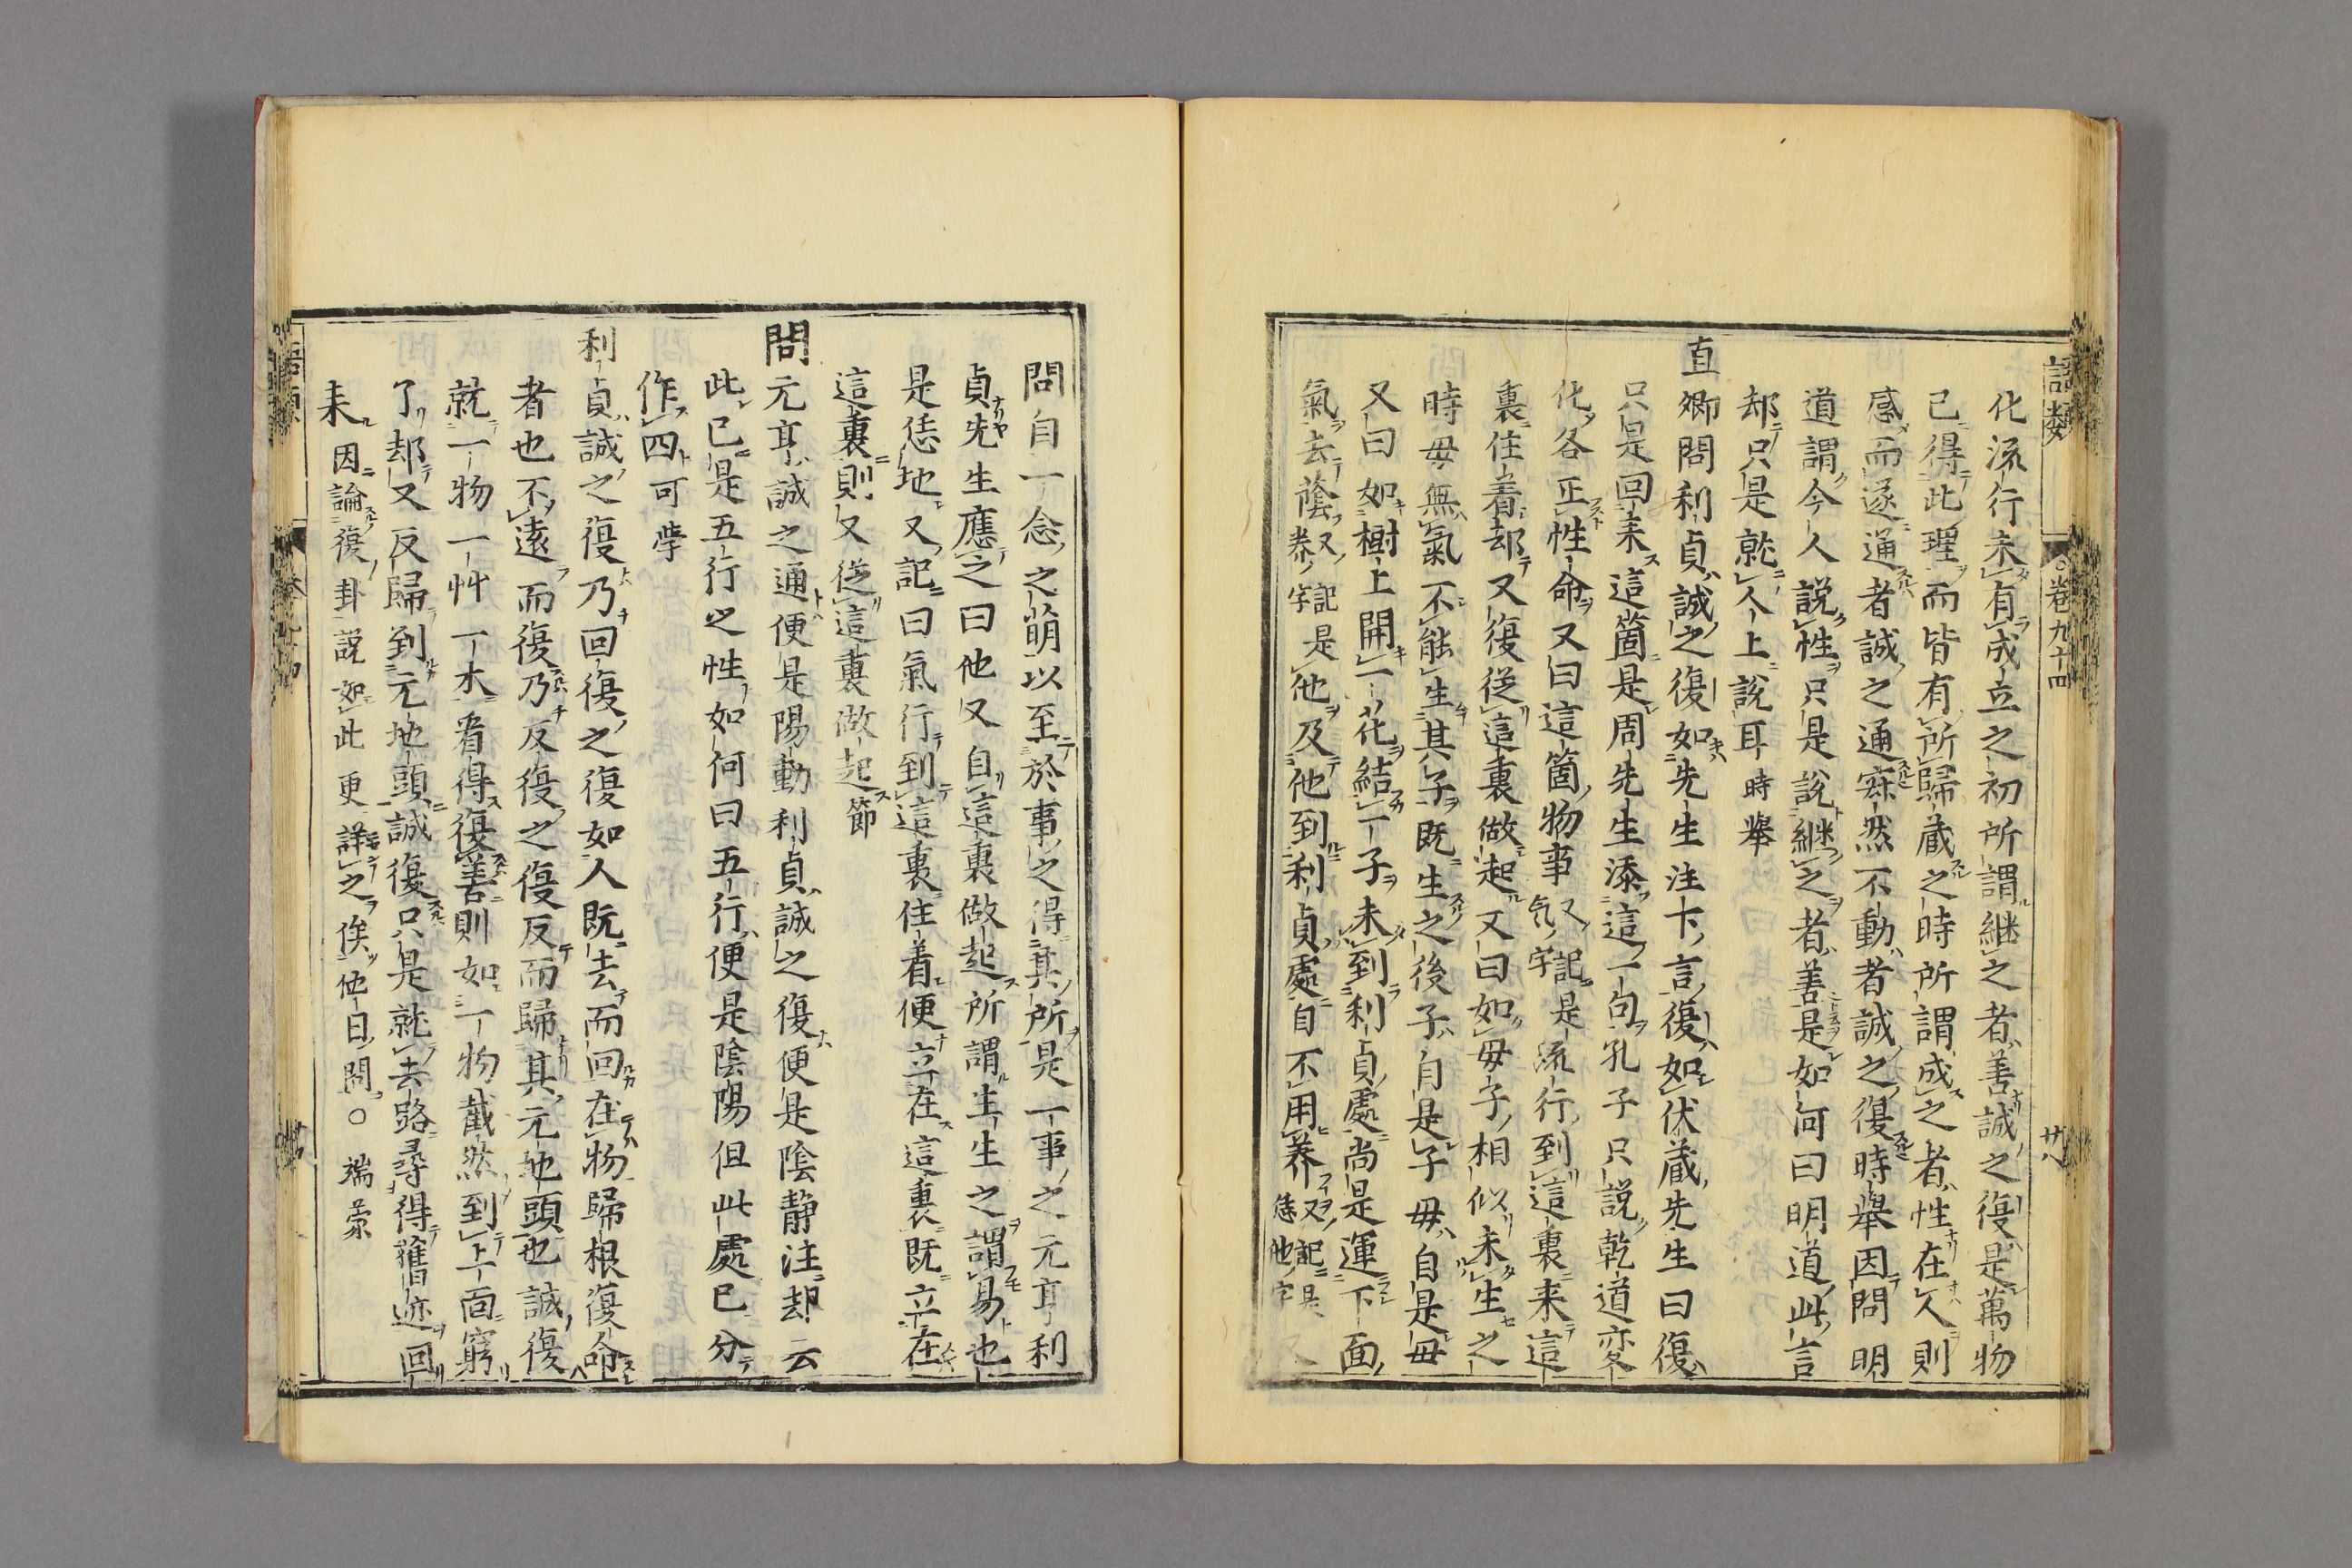 語類 卷九十四 廿八
化流行未有成立之初所謂継之者善誠之復是萬物
已得此理而皆有所歸蔵之時所謂成之者性在人則
感而遂通者誠之通寂然不動者誠之復時舉因問明
道謂今人説性只是説継之者善是如何曰明道此言
却只是就人上說耳時舉
直卿問利貞誠之復如先生注下言復如伏蔵先生曰復
只是回来這箇是周先生添這一句孔子只説乾道変
化各正性命又曰這箇物事又記気字是流行到這裏来這
裏住着却又復従這裏做起又曰如母子相似未生之
時毋無氣不能生其子既生之後子自是子毋自是毋
又曰如樹上開一花結一子未到利貞處尚是運下面
氣去蔭又記養字是他及他到利貞處自不用養又記是恁他字又
問自一念之萌以至於事之得其所是一事之元亨利
貞先生應之曰他又自這裏做起所謂生生之謂易也
是恁地又記曰氣行到這裏住着便立在這裏既立在
這裏則又従這裏做起節
問元亨誠之通便是陽動利貞誠之復便是陰静注却云
此已是五行之性如何曰五行便是陰陽但此處已分
作四可学
利貞誠之復乃回復之復如人既去而回在物歸根復命
者也不遠而復乃反復之復反而歸其元地頭也誠復
就一物一艸一木看得復善則如一物截然到上面窮
了却又反歸到元地頭誠復只是就去路尋得舊迹回
来因論復卦説如此更詳之俟他日問○端蒙